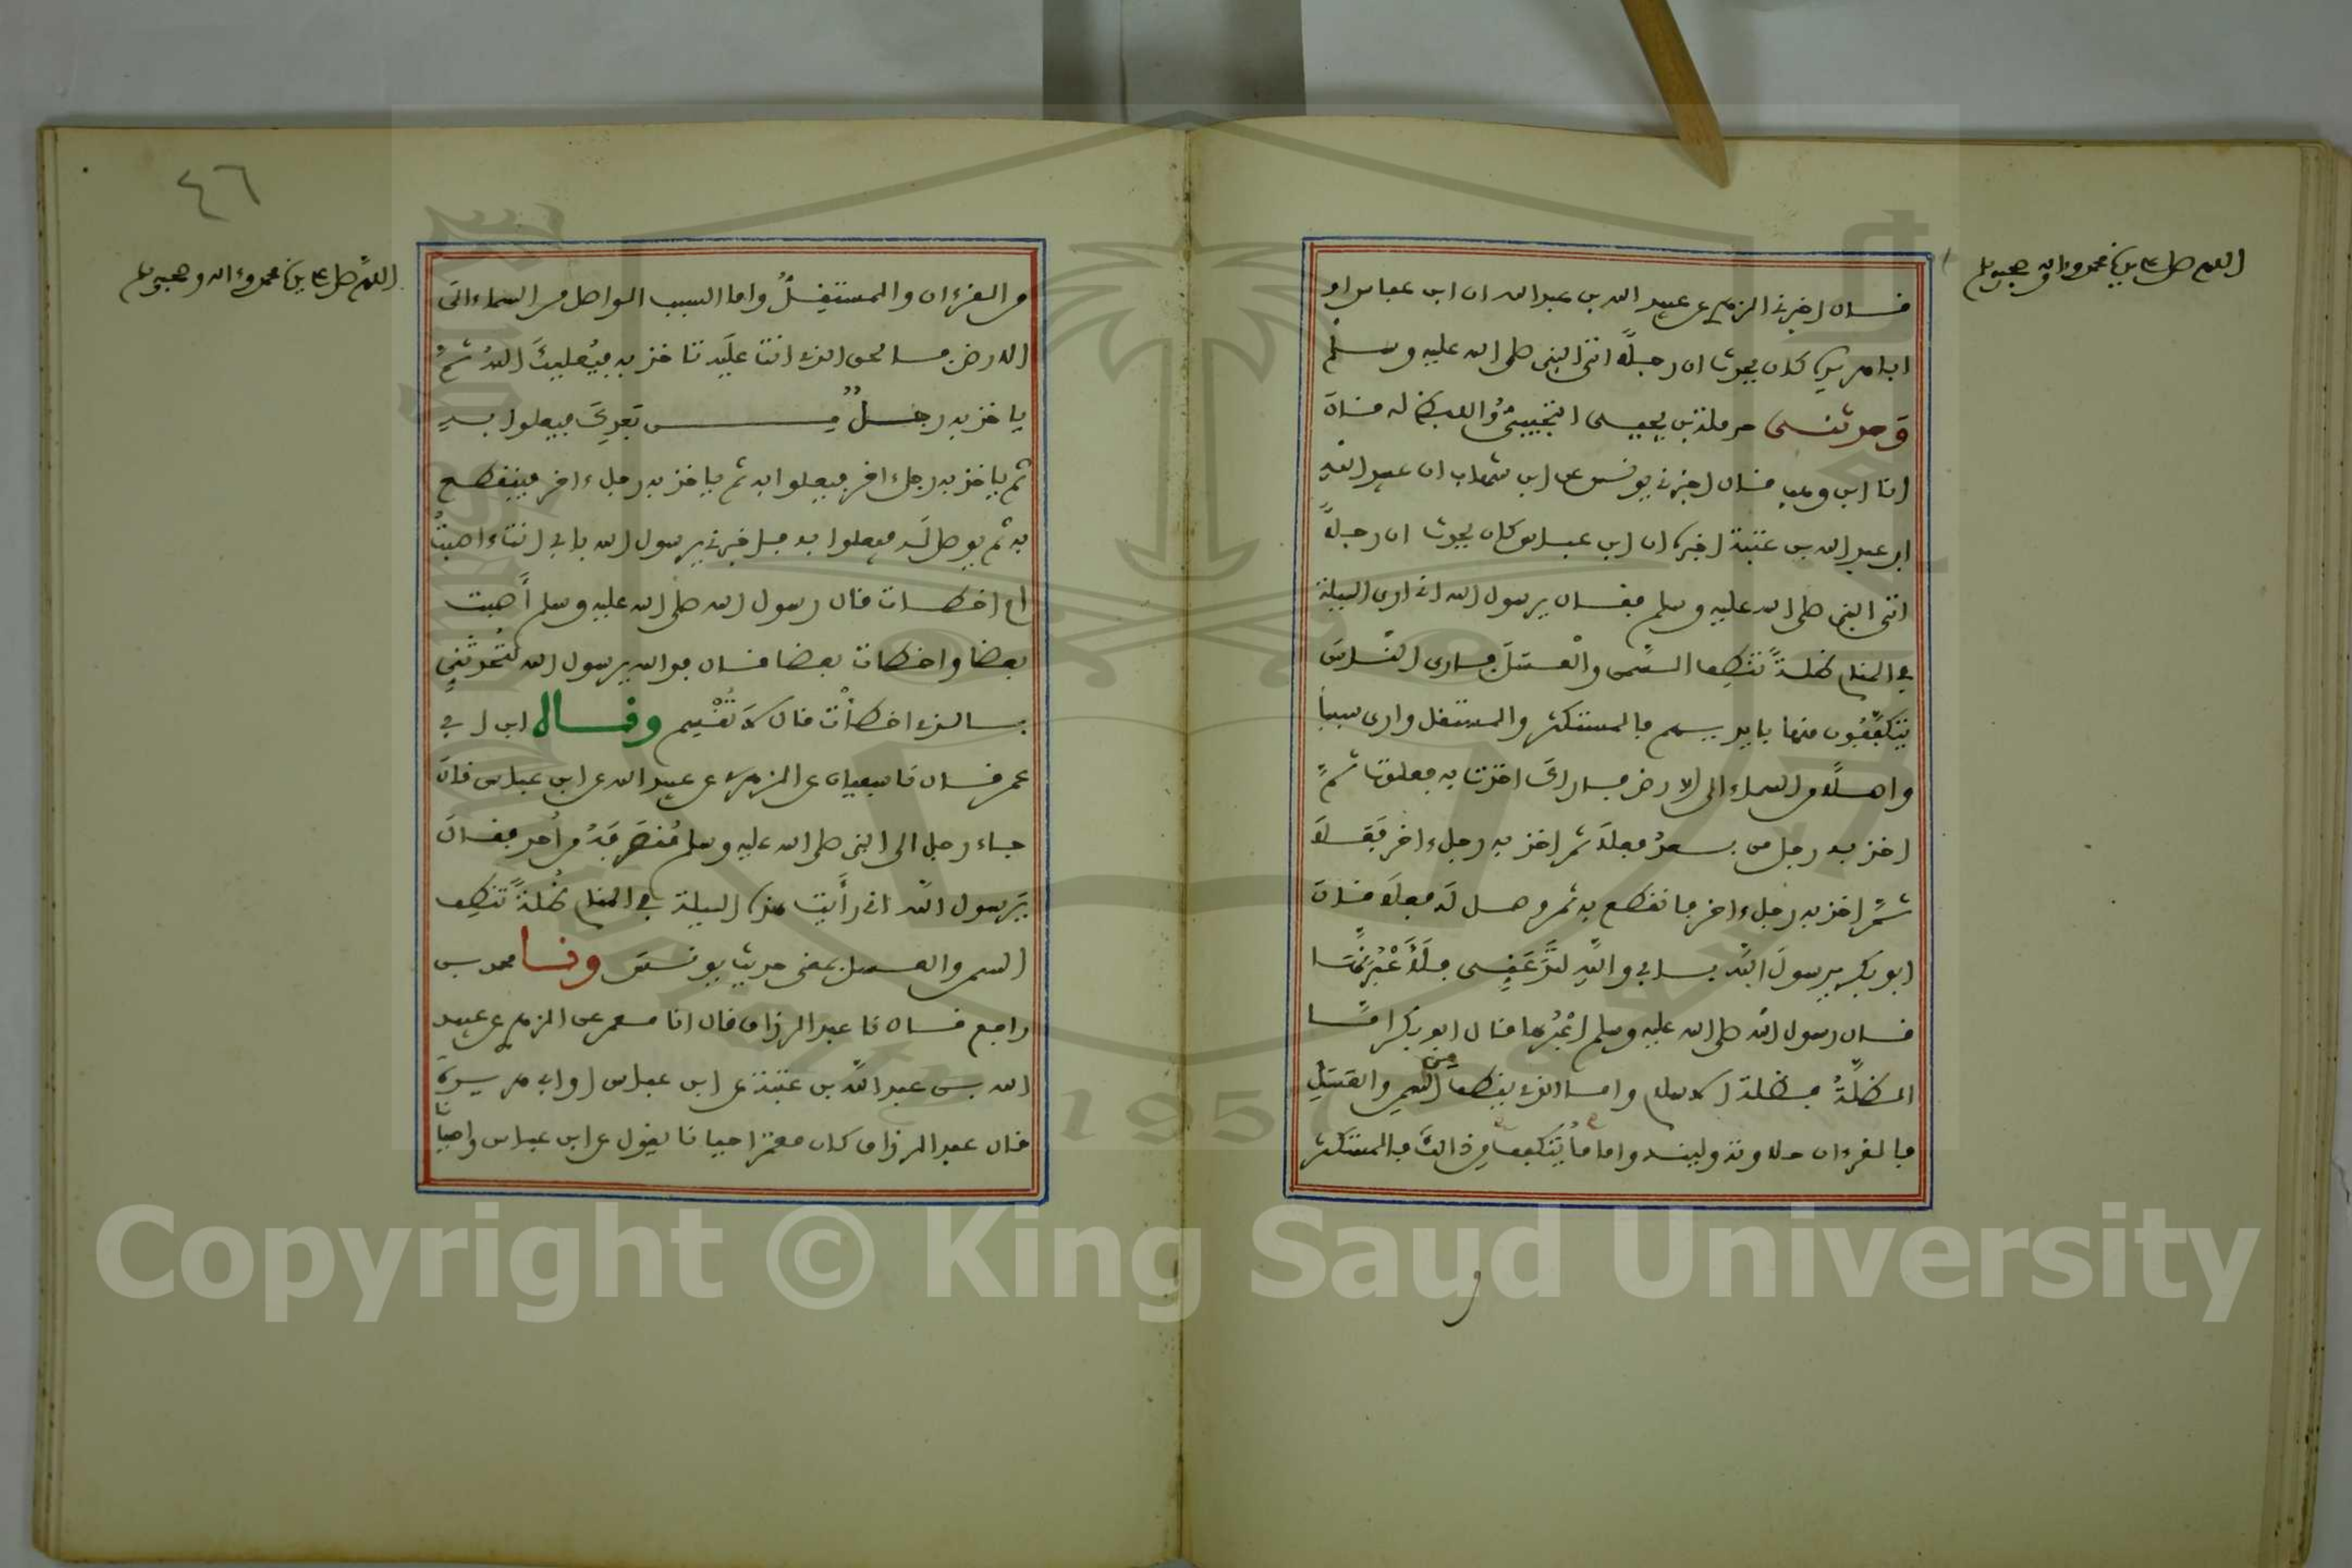 اللهم صل على سيدنا محمد وءاله وصحبه وسلم
فال اخبرني الزهري عن عبيد الله بن عبد الله ان ابن عباس او
ابا هريرة كان يحدث ان رجلا اتى النبي صلى الله عليه وسلم
وحدثني حرملة بن يحيى التجيبي واللفظ له فال
انا ابن وهب فال اخبرني يونس عن ابن شهاب ان عبيد الله
ابن عبد الله بن عتبة اخبره ان ابن عباس كان يحدث ان رجلا
اتى النبي صلى الله عليه وسلم ففال يرسول الله اني ارى الليلة
في المنام ظلة تنطف السمن والعسل فارى الناس
يتكففون منها بايديهم فالمستكثر والمستفل وارى سببا
واصلا من السماء الى الارض فاراك اخذت به فعلوت ثم
اخذ به رجل من بعد فعلا ثم اخذ به رجل ءاخر فعلا
ثم اخذ به رجل ءاخر فانفطع به ثم وصل له فعلا فال
ابو بكر يرسول الله بابي والله لتدعني فلأعبرنها
فال رسول الله صلى الله عليه وسلم اعبرها فال ابو بكر اما
الظلة فظلة الاسلام واما الذي ينطف من السمن والعسل
فالفرءان حلاوته ولينه واما ما يتكفف من ذالك فالمستكثر
و
٤٦
اللهم صل على سيدنا محمد وءاله وصحبه وسلم
من الفرءان والمستفل واما السبب الواصل من السماء الى
الارض فالحق الذي انت عليه تاخذ به فيعليك الله ثم
ياخذ به رجل من بعدك فيعلوا به
ثم ياخذ به رجل ءاخر فيعلوا به ثم ياخذ به رجل ءاخر فينفطع
به ثم يوصل له فيعلوا به فاخبرني يرسول الله بابي انت ءاصبت
ام اخطات فال رسول الله صلى الله عليه وسلم أصبت
بعضا واخطات بعضا فال فوالله يرسول الله لتحدثني
بالذي اخطأت فال لا تفسم وفال ابن ابي
عمر فال نا سفيان عن الزهري عن عبيد الله عن ابن عباس فال
جاء رجل الى النبي صلى الله عليه وسلم منصرفه من أحد ففال
يرسول الله اني رأيت هذه الليلة في المنام ظلة تنطف
السمن والعسل بمعنى حديث يونس ونا محمد بن
رافع فال نا عبد الرزاق فال انا معمر عن الزهري عن عبيد
الله بن عبد الله بن عتبة عن ابن عباس او ابي هريرة
فال عبد الرزاق كان معمر احيانا يفول عن ابن عباس واحيانا
Copyright © King Saud University
1957